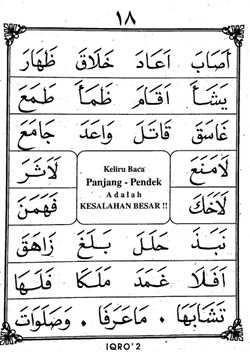 ١٨
اَصَابَ اَعَادَ خَلَاقَ ظَهَارَ
يَشَأُ اَقَامَ ظَمَأَ طَمَعَ
غَاسَقَ قَاتَلَ وَاعَدَ جَامَعَ
لَامَنَعَ
Keliru Baca
لَاثَرَ
Panjang - Pendek
Adalah
لَاخَكَ
KESALAHAN BESAR !!
فَهَمَنَ
نَبَذَ حَلَلَ بَلَغَ زَاهَقَ
اَفَلَا غَمَدَ مَلَكَا فَلَهَا
تَشَابَهَا ۰ مَاعَرَفَا ۰ وَصَلَوَاتَ
IQRO' 2